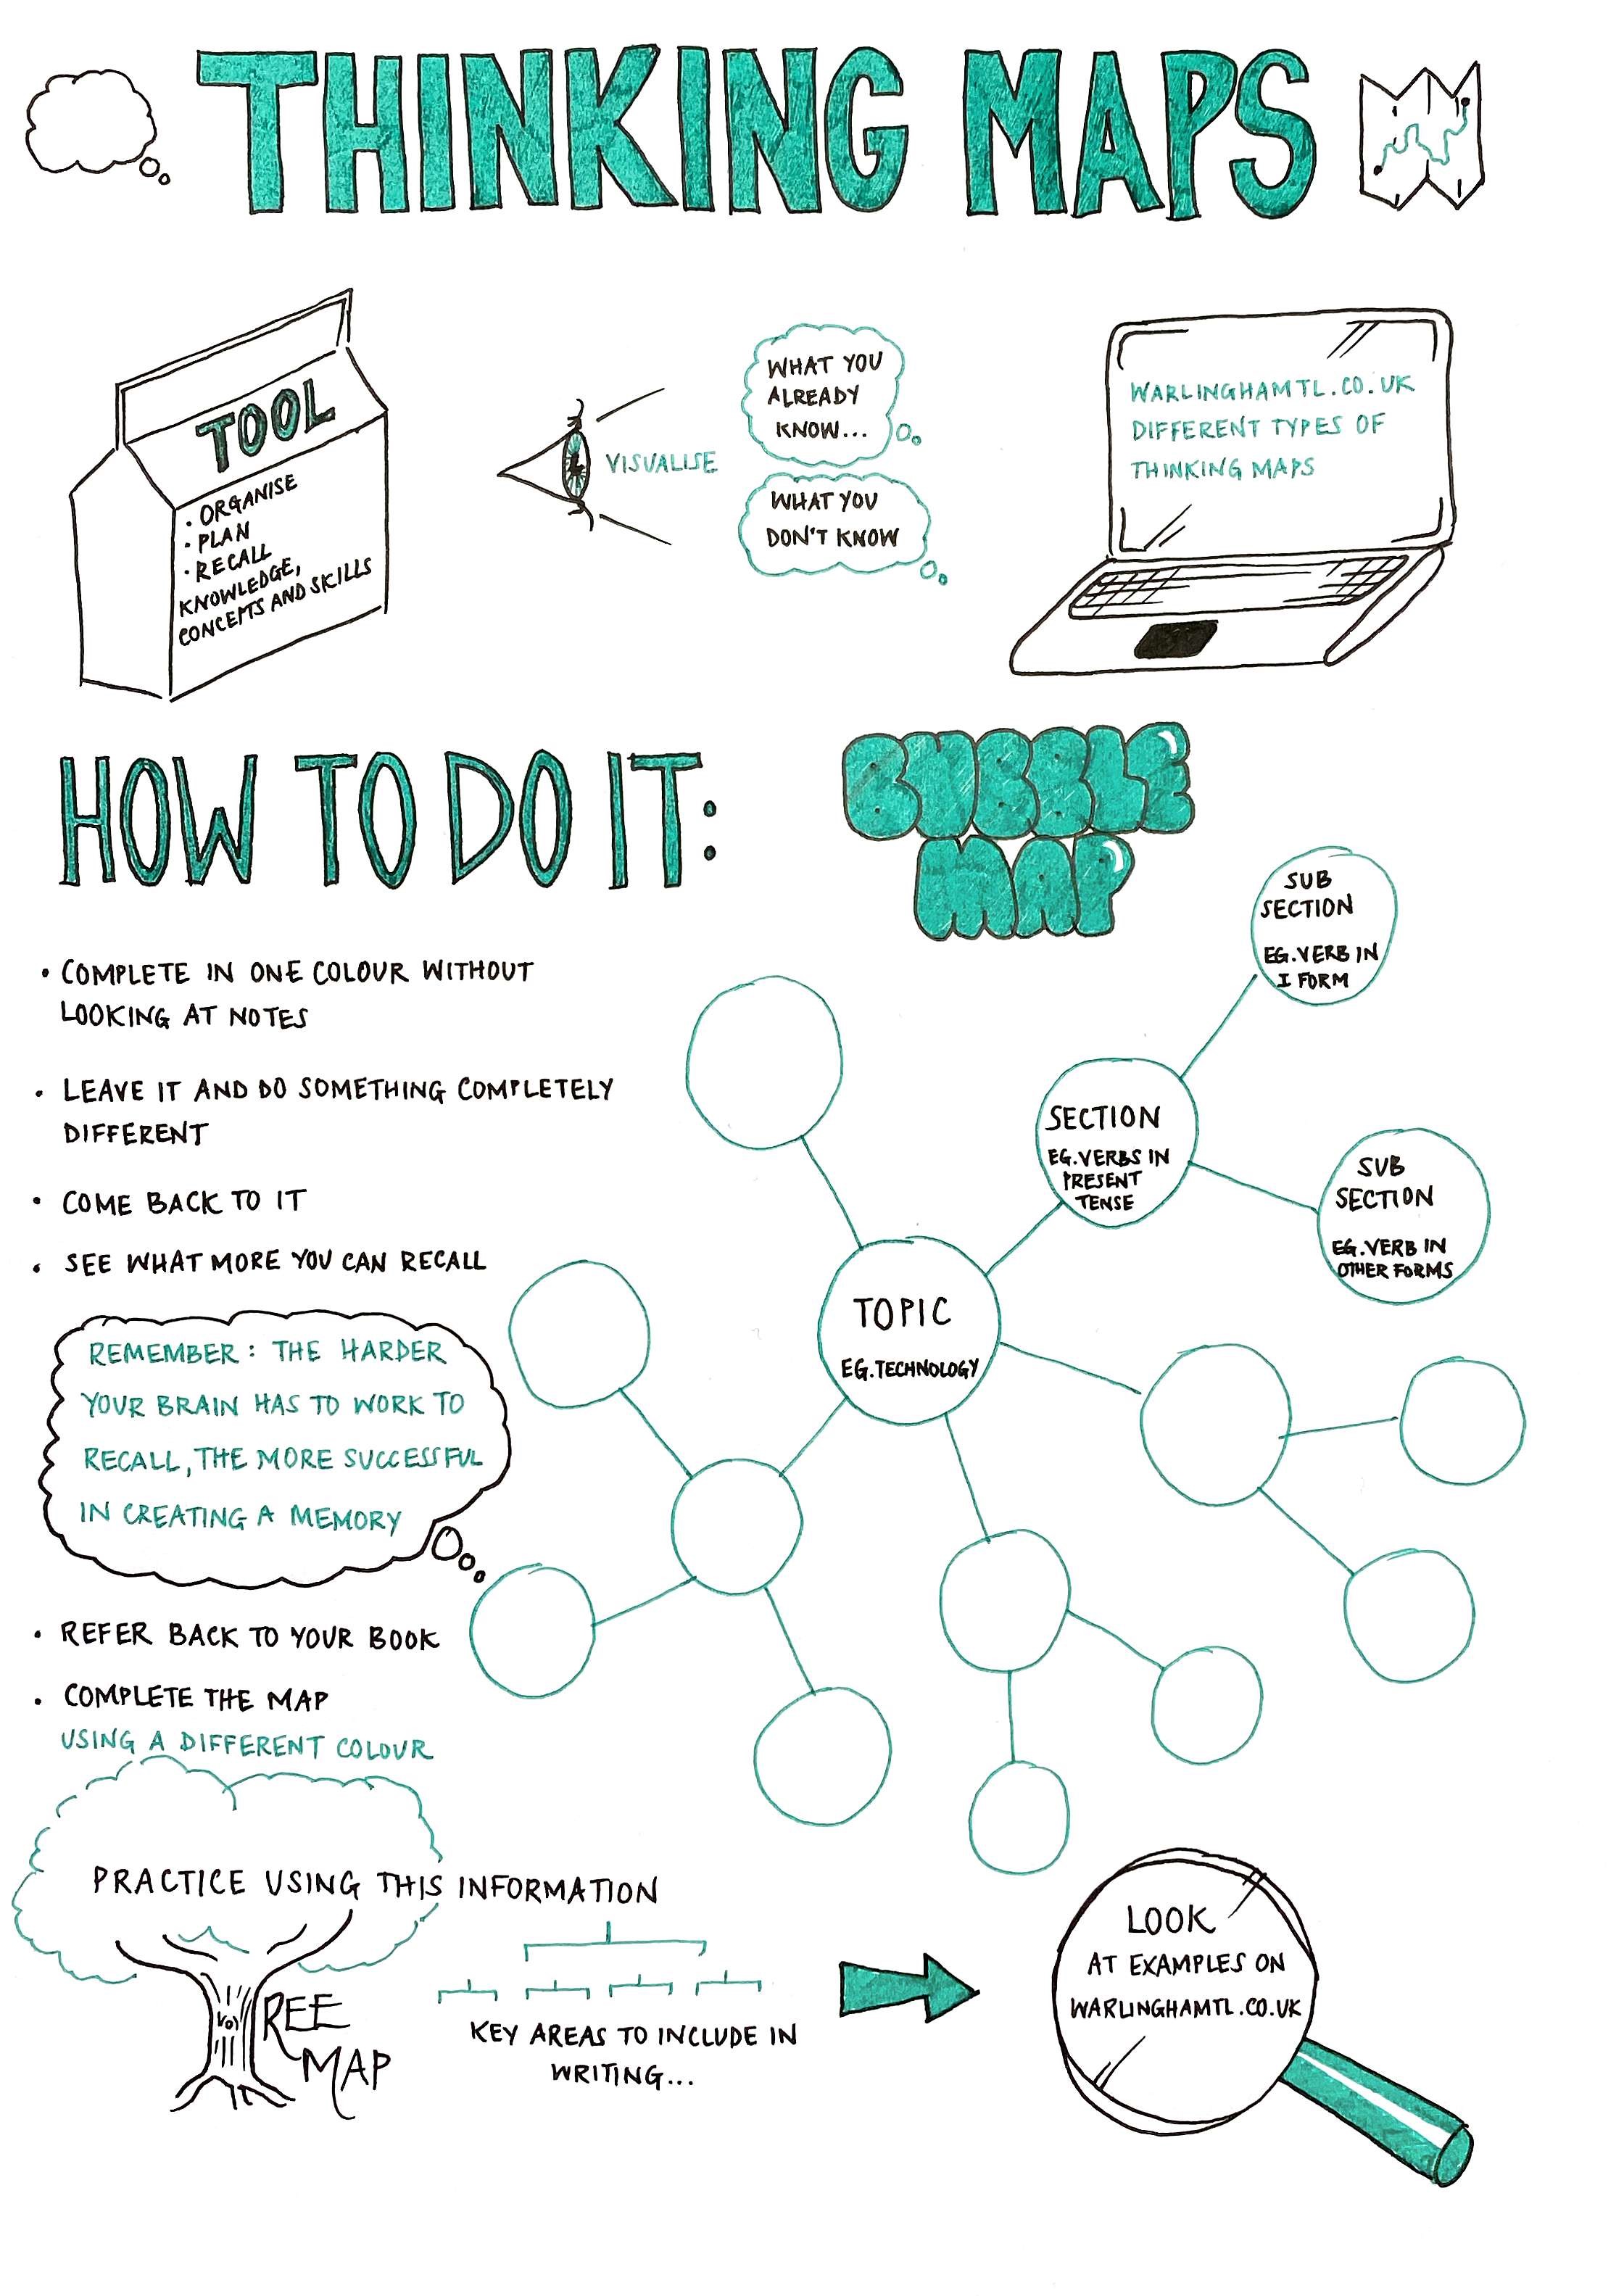 THINKING MAPS
TOOL
• ORGANISE
• PLAN
• RECALL
KNOWLEDGE,
CONCEPTS AND SKILLS
VISUALISE
WHAT YOU
ALREADY
KNOW...
WHAT YOU
DON'T KNOW
WARLINGHAMTL.CO.UK
DIFFERENT TYPES OF
THINKING MAPS
HOW TO DO IT:
• COMPLETE IN ONE COLOUR WITHOUT
LOOKING AT NOTES
• LEAVE IT AND DO SOMETHING COMPLETELY
DIFFERENT
• COME BACK TO IT
• SEE WHAT MORE YOU CAN RECALL
REMEMBER: THE HARDER
YOUR BRAIN HAS TO WORK TO
RECALL, THE MORE SUCCESSFUL
IN CREATING A MEMORY
• REFER BACK TO YOUR BOOK
• COMPLETE THE MAP
USING A DIFFERENT COLOUR
BUBBLE
MAP
SUB
SECTION
EG. VERB IN
I FORM
SECTION
EG. VERBS IN
PRESENT
TENSE
SUB
SECTION
EG. VERB IN
OTHER FORMS
TOPIC
EG. TECHNOLOGY
PRACTICE USING THIS INFORMATION
TREE
MAP
KEY AREAS TO INCLUDE IN
WRITING...
LOOK
AT EXAMPLES ON
WARLINGHAMTL.CO.UK